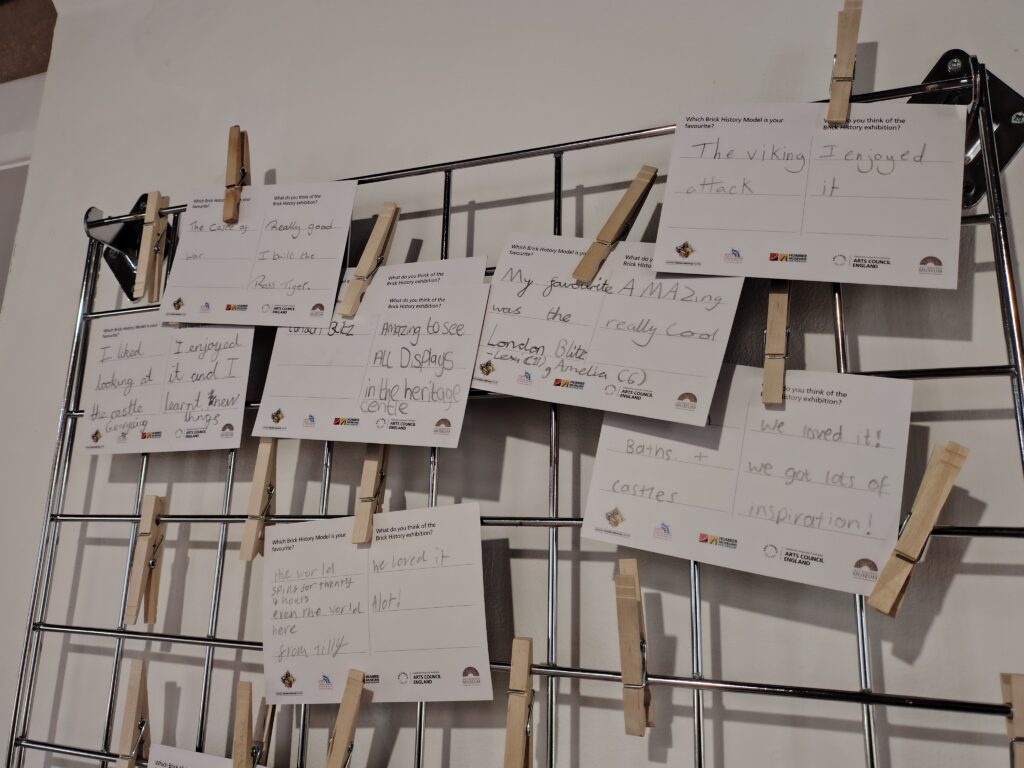 Which Brick History Model is your
favourite?
The viking
attack
What do you think of the
Brick History exhibition?
I enjoyed
it
HUMBER MUSEUMS
ARTS COUNCIL
ENGLAND
MUSEUM
favourite?
The
war
What do you think of the
Brick History exhibition?
Really good
I build the
Ross Tiger.
ARTS COUNCIL
ENGLAND
MUSEUM
Which Brick History Model is your
My favourite
was the
London Blitz
AMAZing
really cool
Amelia (6)
ARTS COUNCIL
ENGLAND
MUSEUM
What do you think of the
Brick History exhibition?
London Blitz
Amazing to see
ALL Displays
in the heritage
centre
ARTS COUNCIL
ENGLAND
favourite?
I liked
looking at
the castle
I enjoyed
it and I
learnt new
things
What do you think of the
History exhibition?
Baths +
castles
we loved it!
we got lots of
inspiration!
HUMBER MUSEUMS
ARTS COUNCIL
ENGLAND
MUSEUM
Which Brick History Model is your
favourite?
the world
spins for twenty
4 hours
even the world
here
from Tilly
What do you think of the
Brick History exhibition?
we loved it
Alot!
ARTS COUNCIL
ENGLAND
MUSEUM